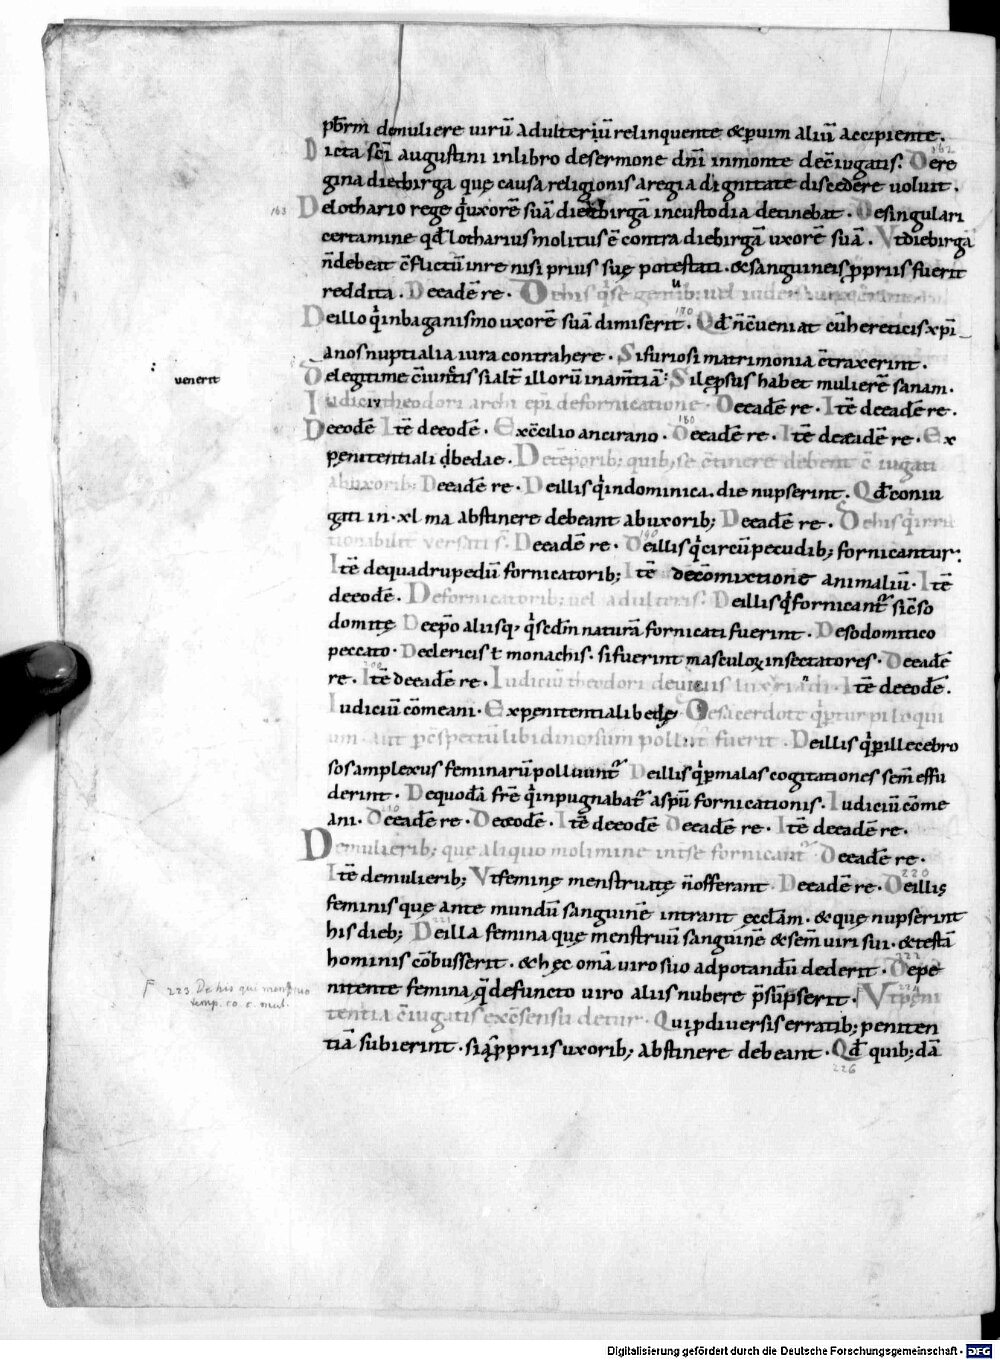 pb̅rm demuliere uirū adulteriū relinquente & p̱ uim aliū accipiente.
Dicta sc̅i augustini inlibro desermone dn̅i inmonte dec̅iugatis. Dere 162
gina dietbirga quę causa religionis aregia dignitate discedere uoluit.
163 Delothario rege q̇ uxorē suā dietbirgā incustodia detinebat. Desingulari
certamine qd̅ lotharius molitus ē contra diebirgā uxorē suā. Vtdiebirga
n̅debeat c̅flictū inire nisi prius suę potestati. & sanguineis p̱priis fuerit
reddita. Deeadē re. Dehis
Deillo q̇ inbaganismo uxorē suā dimiserit. 170 Qd̅ n̅ c̅ueniat cū hereticis xp̅i
anos nuptialia iura contrahere. Sifuriosi matrimonia c̅traxerint.
venerit Delegitime c̅iunctis si alt̅ illorū inam̅tiā: Silępsus habet mulierē sanam.
Iudiciū theodori archi ep̅i defornicatione. Deeadē re. Itē deeadē re.
Deeodē Itē deeodē. Exc̅cilio ancirano. 180 Deeadē re. Itē deeadē re. Ex
penitentiali bedae. Detēporib; quib; se c̅tinere debent c̅iugati
abuxorib; Deeadē re. Deillis q̇ indominica. die nupserint. Qd̅ coniu
gati in. xl ma abstinere debeant abuxorib; Deeadē re. Dehis q̇ irra
tionabilit̅ versati s̅. Deeadē re. 190 Deillis q̇ circū pecudib; fornicantur.
Itē dequadrupedū fornicatorib; Itē decōmixtione animaliū. Itē
deeodē. Defornicatorib; uel adulteris. Deillis q̇ fornicant̅ sic̅ so
domitę Deep̅o aliisq; q̇ sedm̅ naturā fornicati fuerint. Desodomitico
peccato. Declericis ł monachis. si fuerint masculoꝝ insectatores. Deeadē
re. 200 Itē deeadē re. Iudiciū theodori Itē deeodē.
Iudiciū cōmeani. Expenitentiali bedę Desacerdote q̇ p̱ turpiloquiu
um. aut p̱spectu libidinosum pollut̅ fuerit. Deillis q̇ p̱ illecebro
sos amplexus feminarū polluunt̅ Deillis q̇ p̱ malas cogitationes sem̅ effu
derint. Dequodā fr̅e q̇ inpugnabat̅ asp̅u fornicationis. Iudiciū cōme
ani. 210 Deeadē re. Deeodē. Itē deeodē Deeadē re. Itē deeadē re.
Demulierib; quę aliquo molimine int̅ se fornicant̅ Deeadē re.
Itē demulierib; Vtfeminę menstruatę n̅offerant Deeadē re. 220 Deillis
feminis quę ante mundū sanguinē intrant ęccl̅am. & quę nupserint
his dieb; 221 Deilla femina quę menstruū sanguinē & sem̅ uiri sui. & testā
hominis cōbusserit. & hęc om̅a uiro suo adpotandū dederit. 222 Depe
223 De his qui menstruo nitente femina, q̨ defuncto uiro aliis nubere p̅sūpserit. Γ 224 Vtpeni
temp. co. c. mul. tentia c̅iugatis exc̅sensu detur. Qui p̱ diuersis erratib; peniten
tiā subierint. si a p̱priis uxorib; abstinere debeant. Qd̅ quib; dā
226
Digitalisierung gefördert durch die Deutsche Forschungsgemeinschaft - DFG